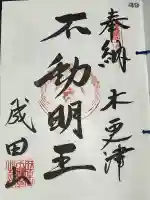 奉納 木更津
不動明王
成田山